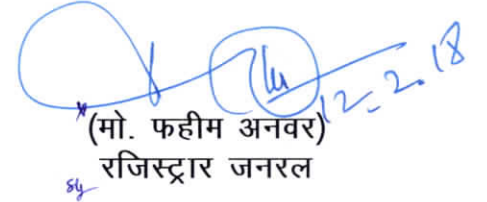 12-2.18
(मो. फहीम अनवर)
रजिस्ट्रार जनरल